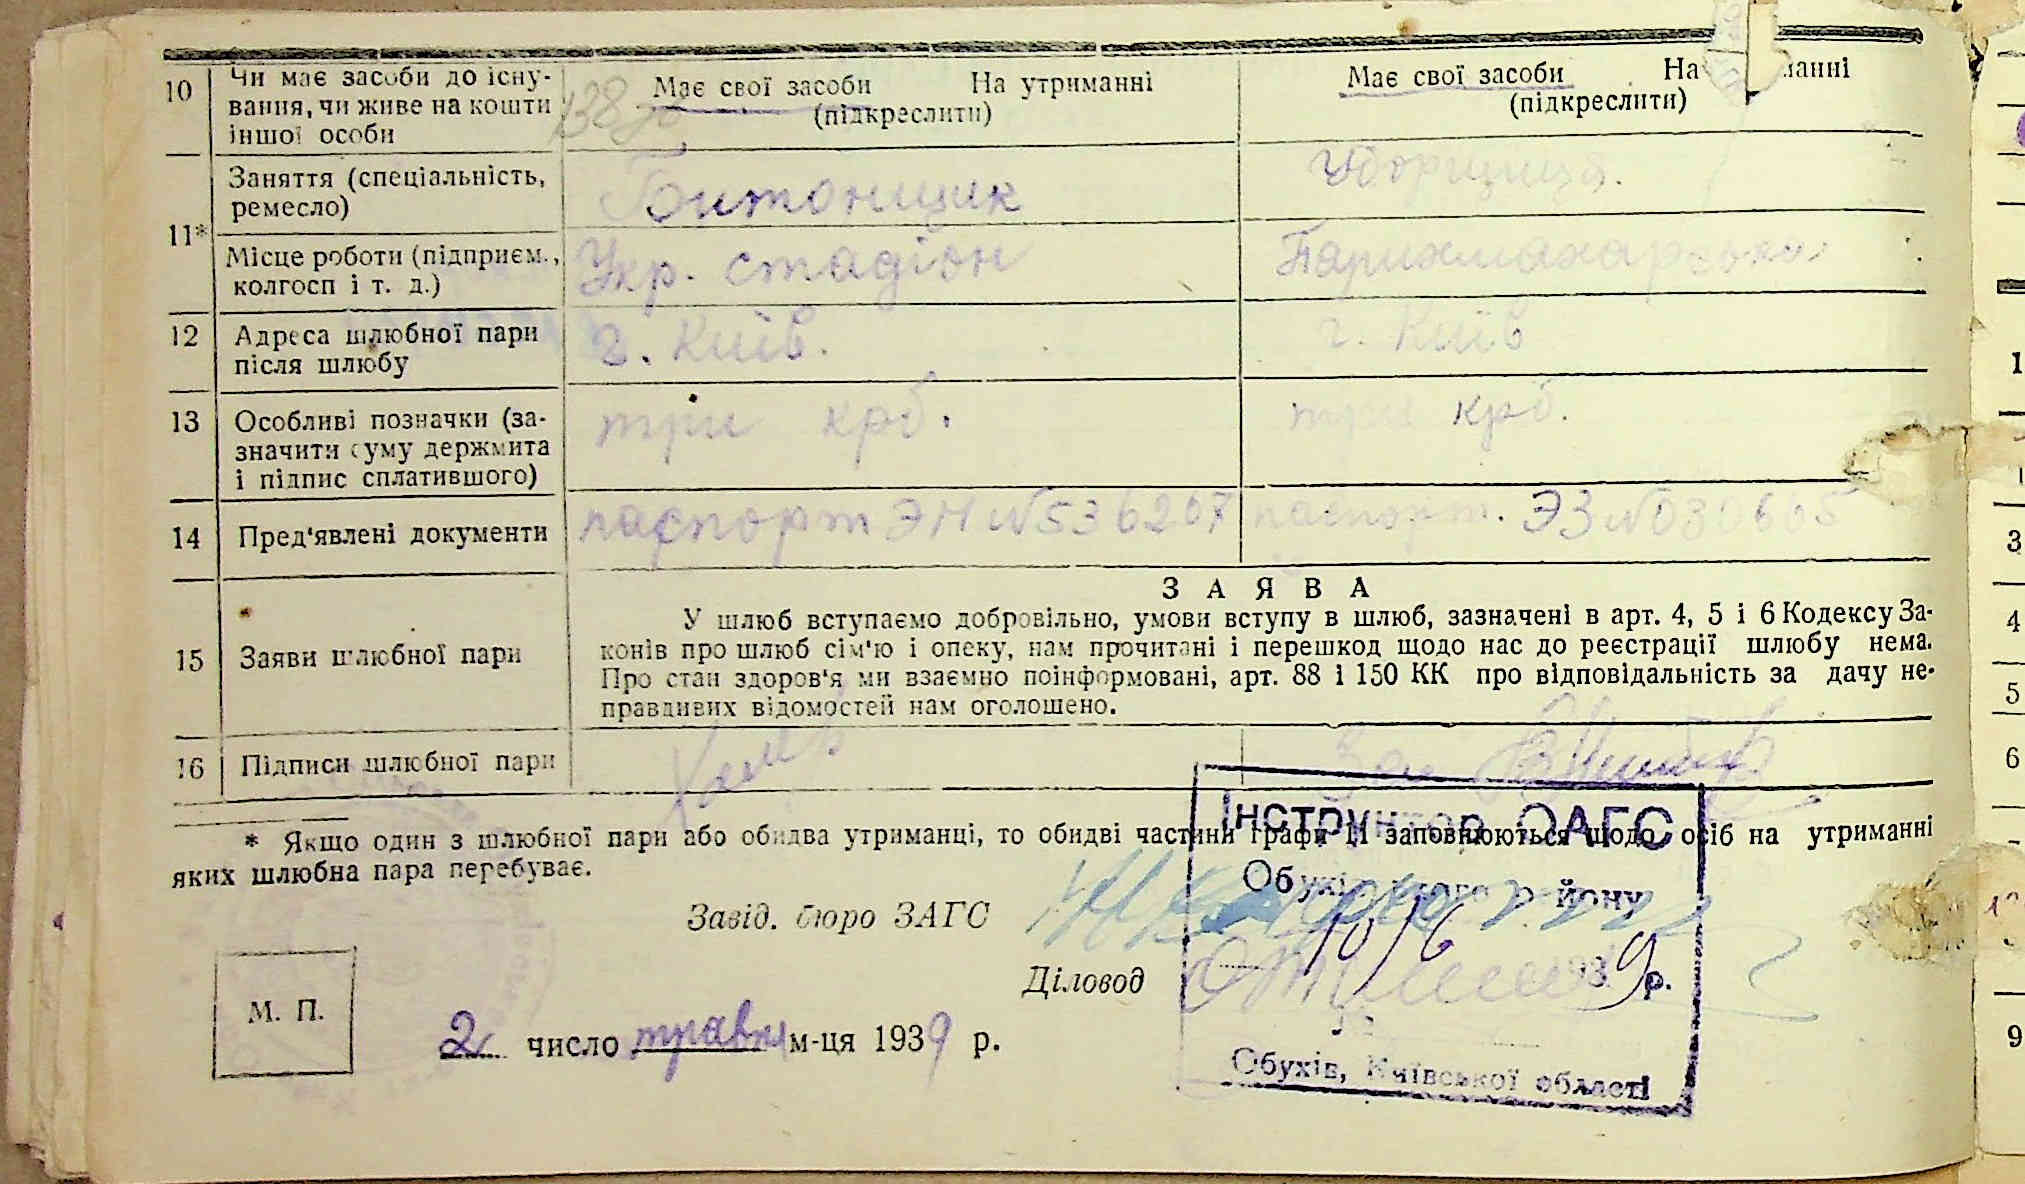 10 Чи має засоби до існу-
вання, чи живе на кошти
іншої особи
Має свої засоби На утриманні
(підкреслити)
Має свої засоби На манні
(підкреслити)
11*
Заняття (спеціальність,
ремесло)
Битонщик
Уборщиця.
Місце роботи (підприєм.,
колгосп і т. д.)
Укр. стадіон
Парихмахарська
12 Адреса шлюбної пари
після шлюбу
г. Київ.
г. Київ
13 Особливі позначки (за-
значити суму держмита
і підпис сплатившого)
три крб.
три крб.
14 Пред'явлені документи
паспорт ЭН №536267
паспорт. ЭЗ №030665
15 Заяви шлюбної пари
ЗАЯВА
У шлюб вступаємо добровільно, умови вступу в шлюб, зазначені в арт. 4, 5 і 6 Кодексу За-
конів про шлюб сім'ю і опеку, нам прочитані і перешкод щодо нас до реєстрації шлюбу нема.
Про стан здоров'я ми взаємно поінформовані, арт. 88 і 150 КК про відповідальність за дачу не-
правдивих відомостей нам оголошено.
16 Підписи шлюбної пари
* Якщо один з шлюбної пари або обидва утриманці, то обидві частини графи 11 заповнюються щодо осіб на утриманні
яких шлюбна пара перебуває.
Інструктор ОАГС
Обухівського району
Завід. бюро ЗАГС
10/6 1939 р.
Діловод
М. П.
2 число травня м-ця 1939 р.
Обухів, Київської області
1
3
4
5
6
9